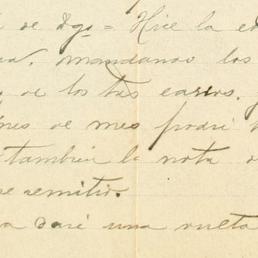 de dgo = Hice la
mandanos los
de los tres casos.
nes de mes podré
también la nota
se remitio.
a daré una vuelta